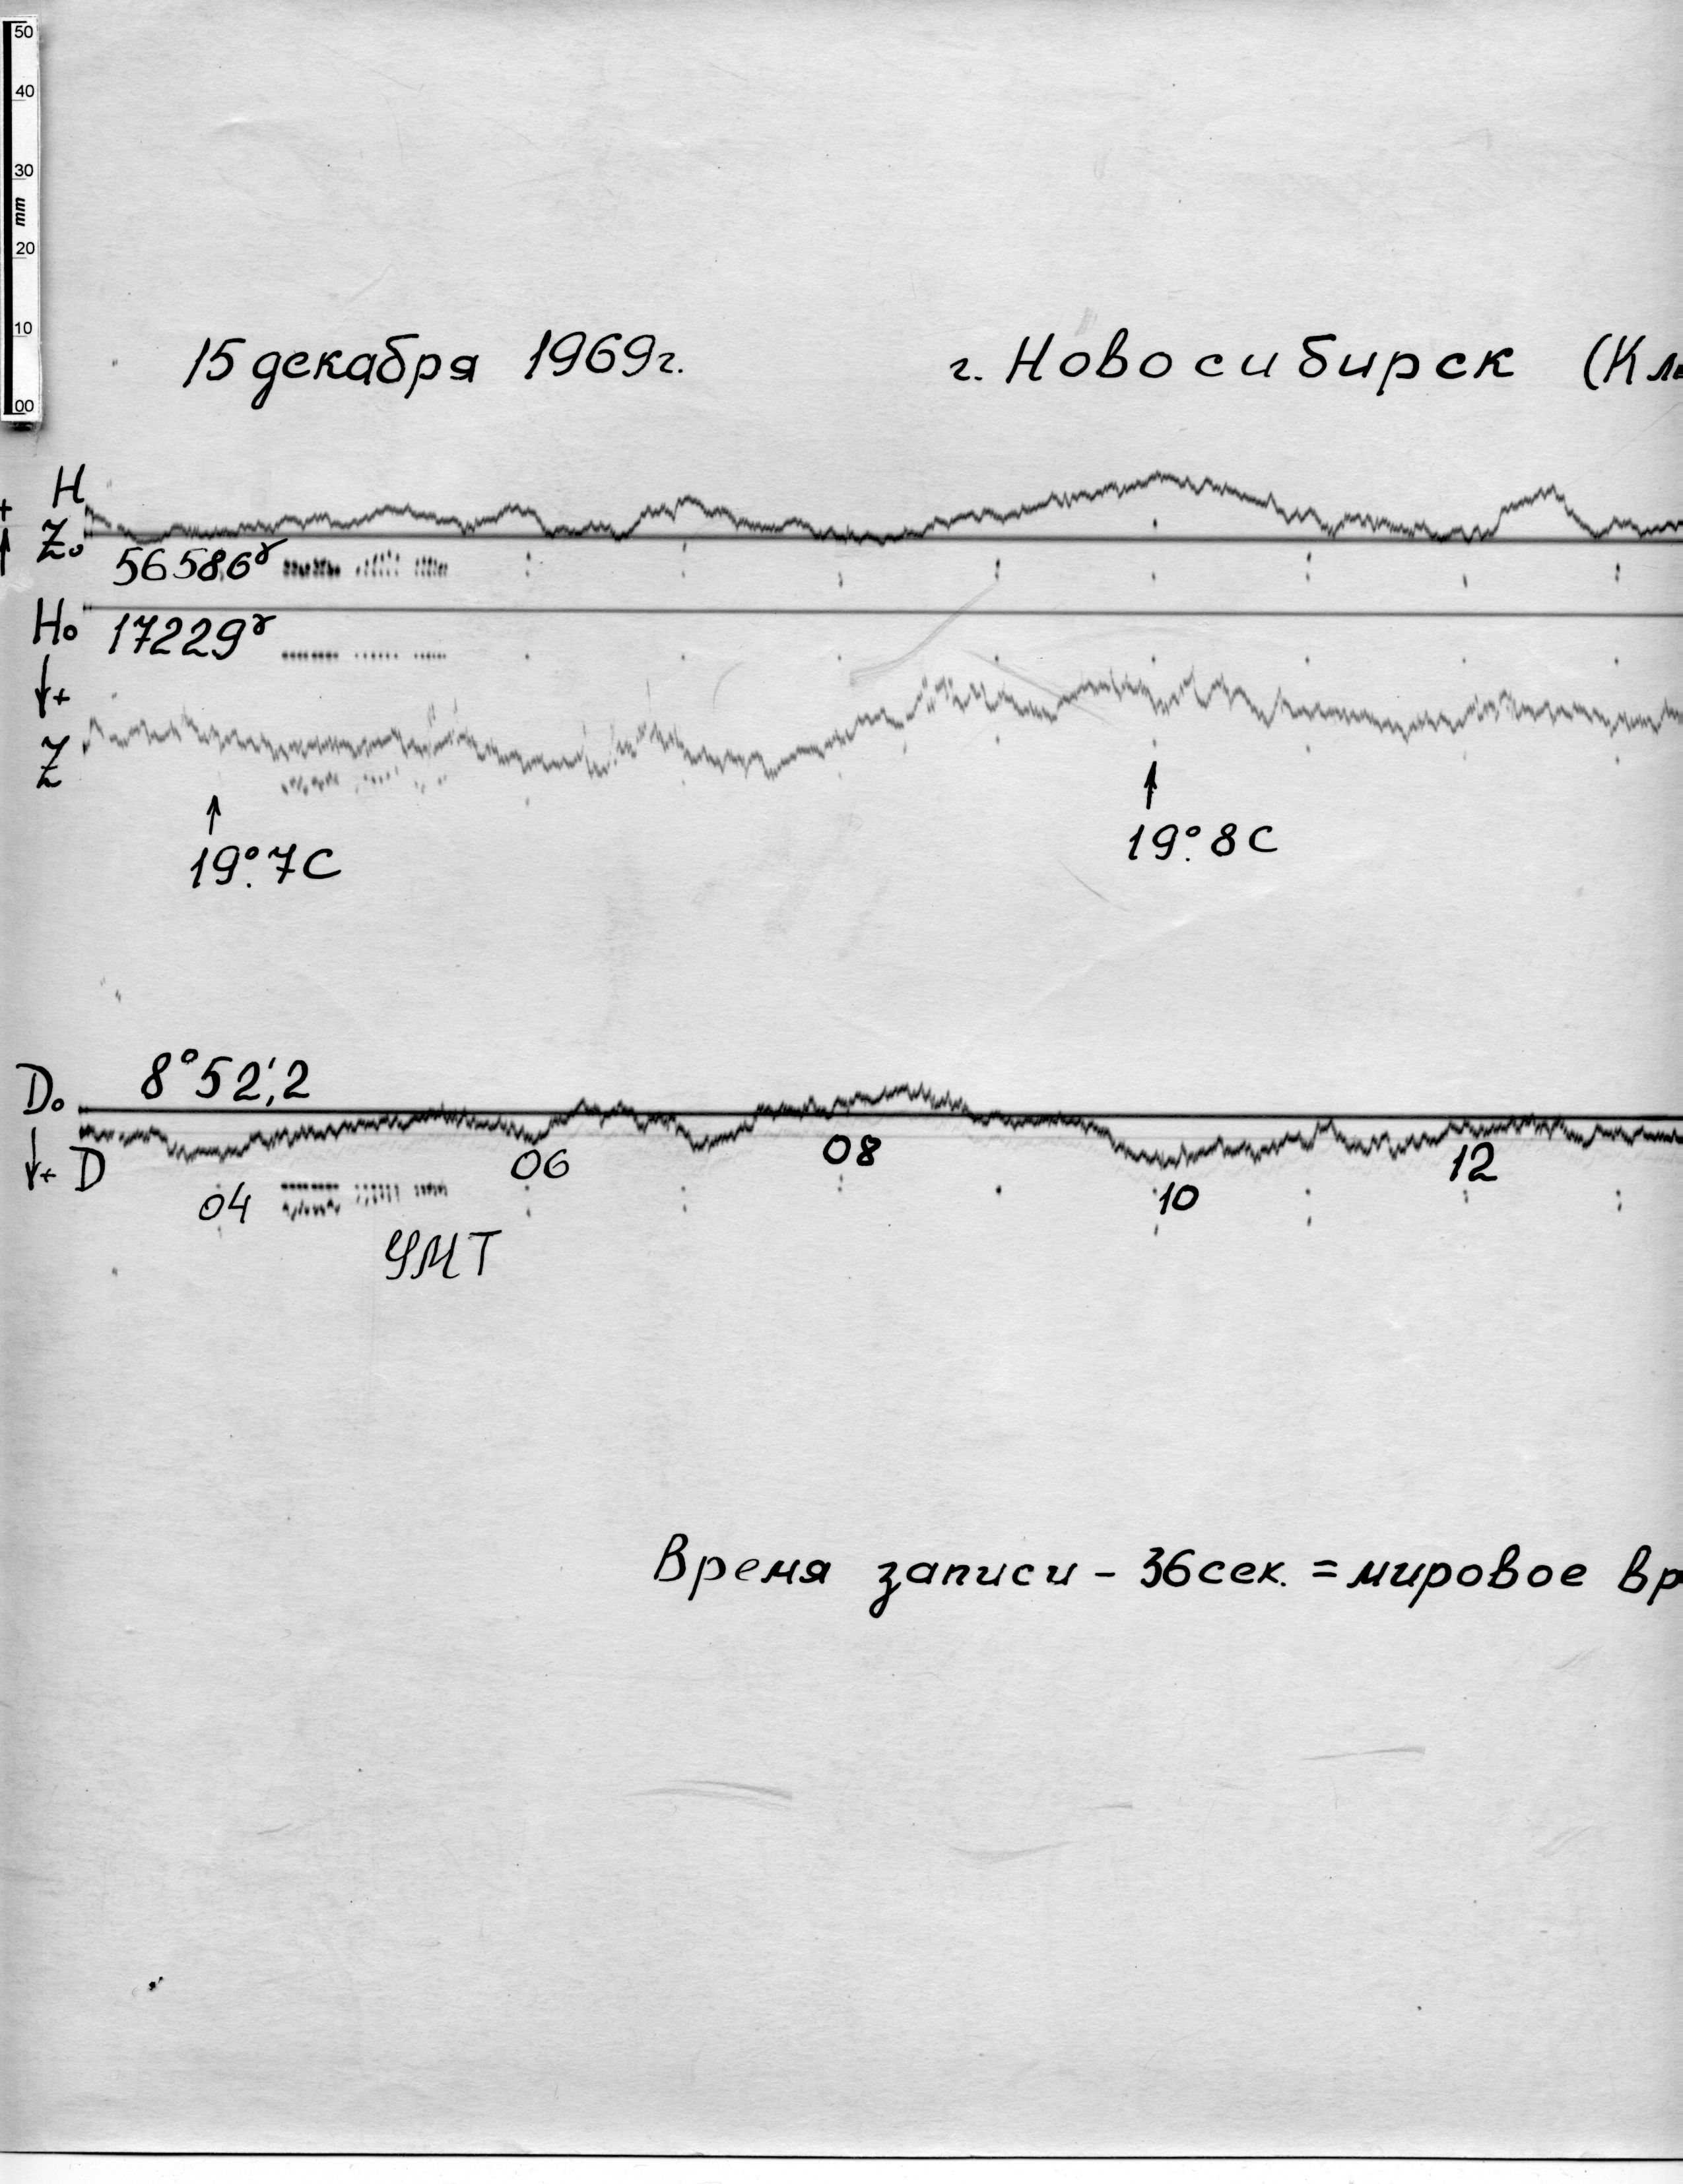 50
40
30
mm
20
10
00
15 декабря 1969г. г. Новосибирск (Кл
H
+
Z₀ 56586ᵞ
H₀ 17229ᵞ
+
Z
19°.7C 19°.8C
D₀ 8°52',2
+ D
04 06 08 10 12
УМТ
Время записи - 36сек. = мировое вр